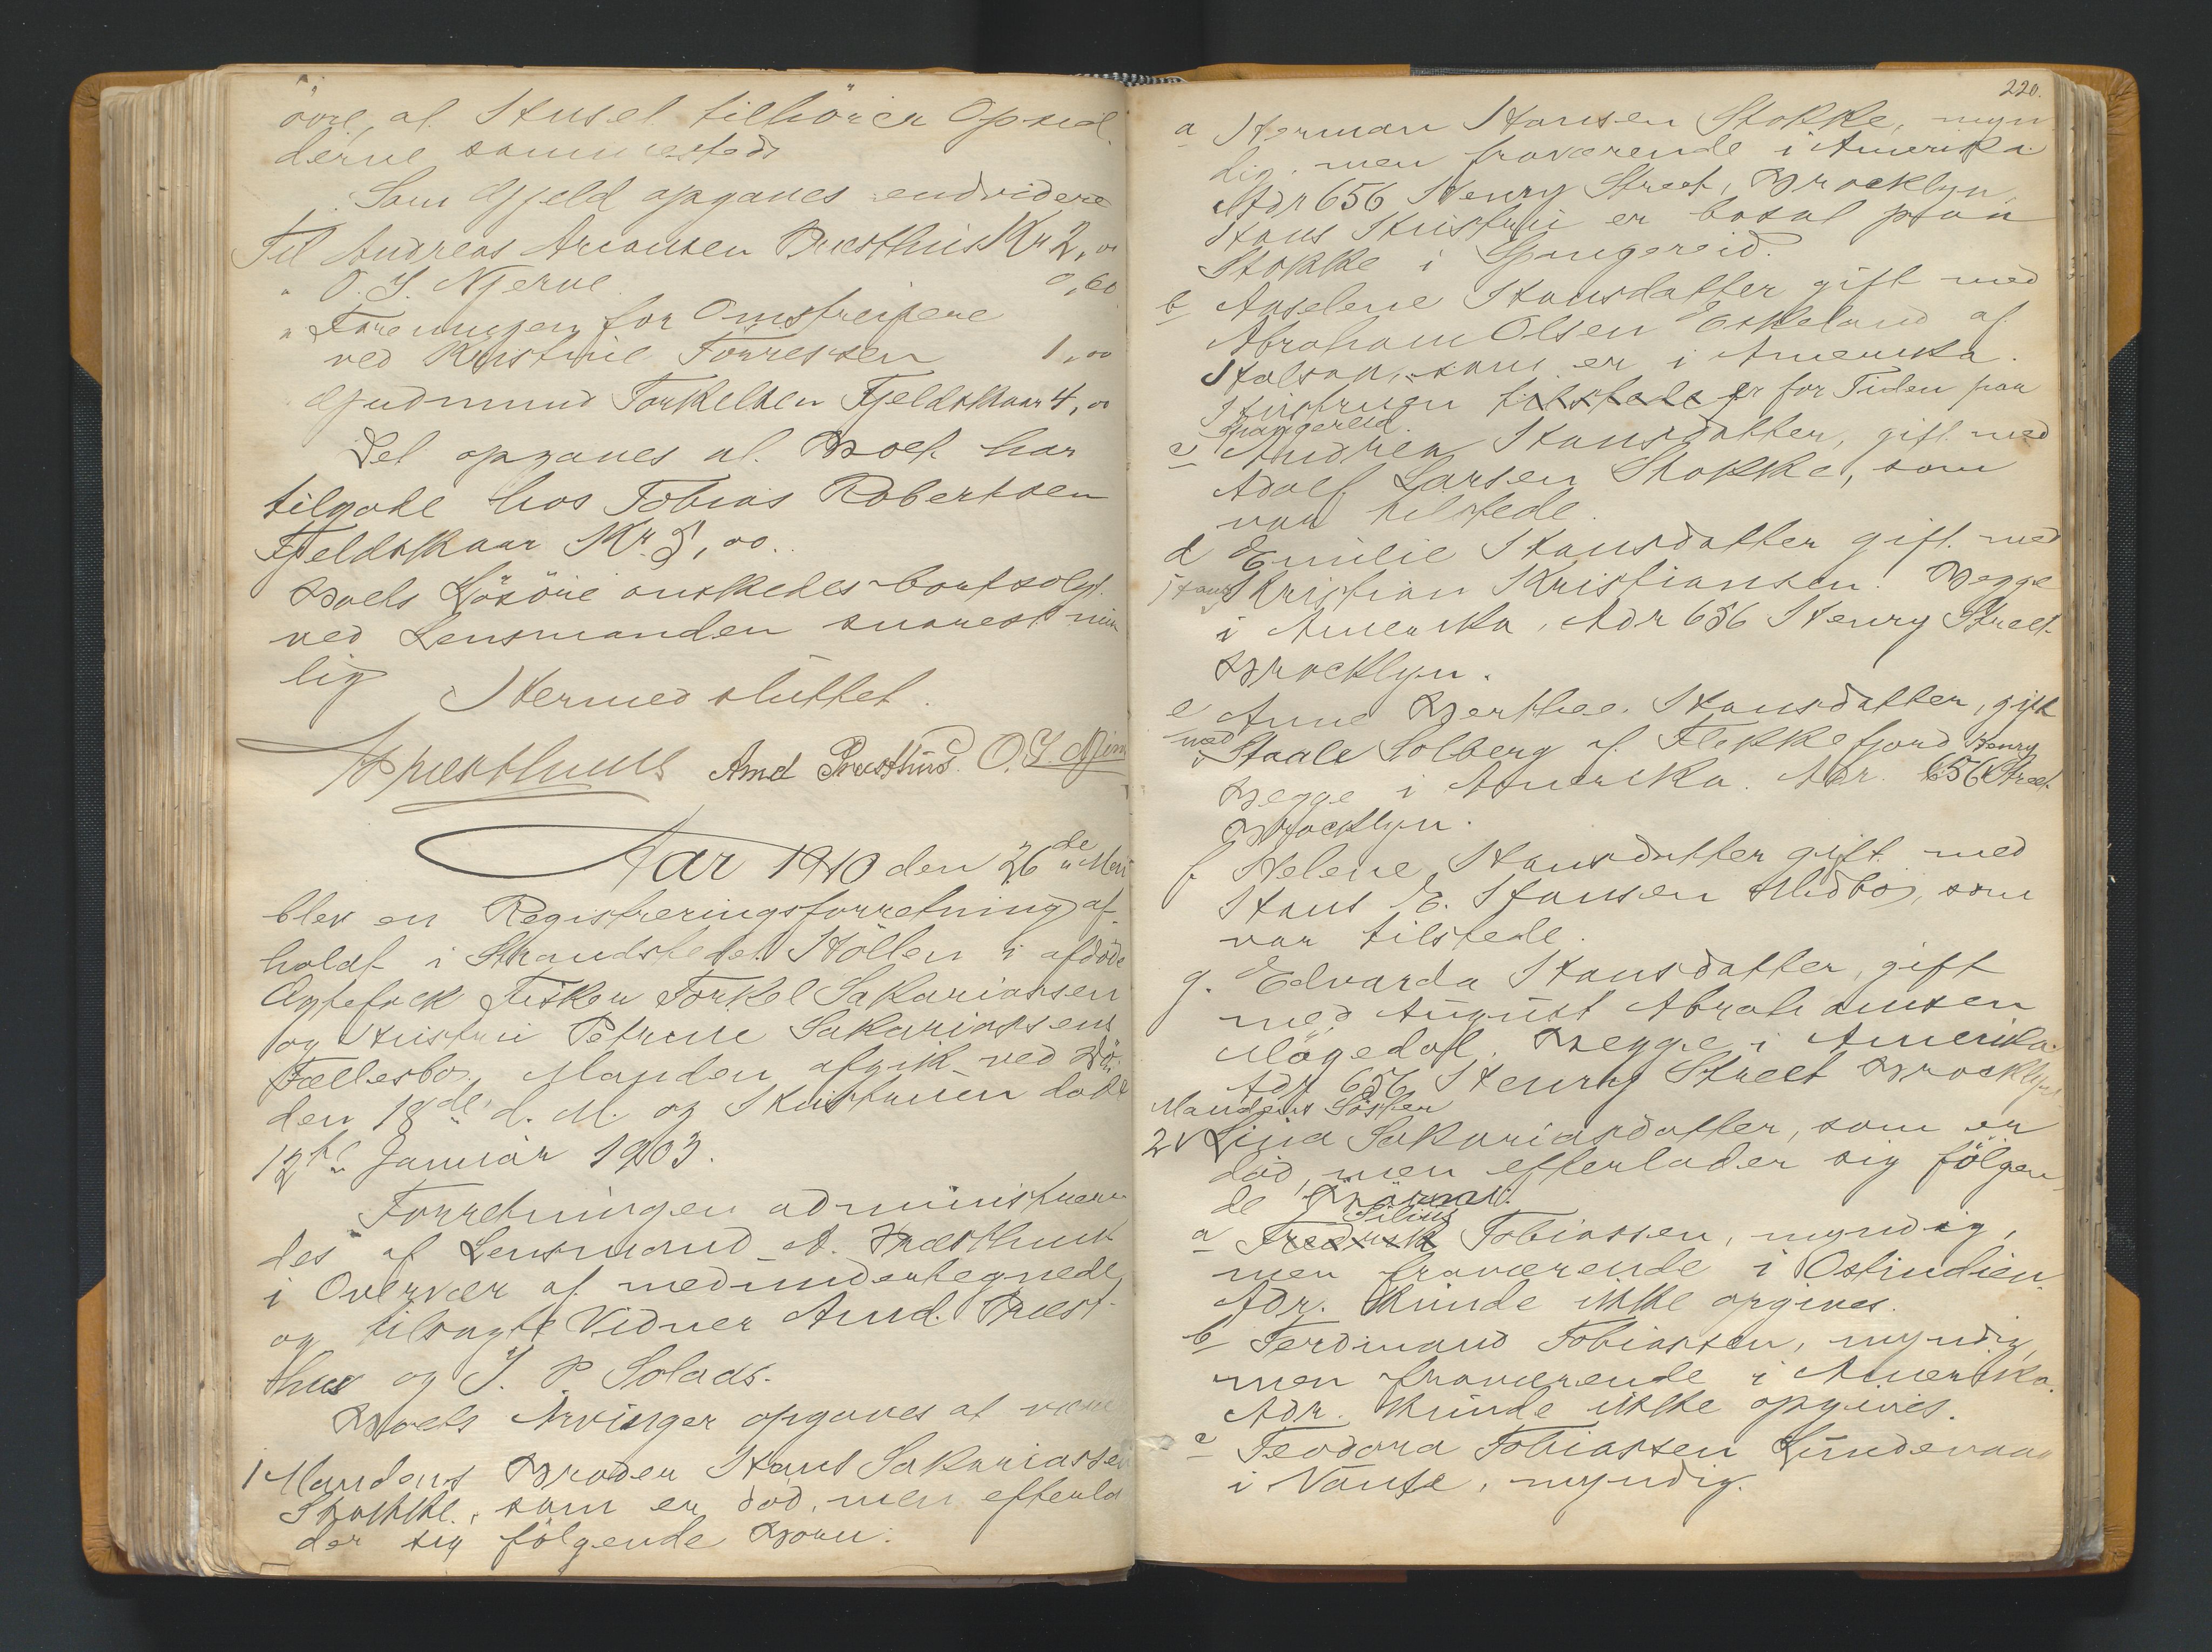 övre, at Huset tilhörer Opsid
derne sammesteds
Som Gjeld opgaves endvidere
Til Andreas Aronsen Præsthus Kr 2,00
" O. J. Njerve 0,60
" Foreningen for Omstreifere
ved Kristine Torressen 1,00
Gudmund Torkelsen Fjeldskaar 4,00
Det opgaves at Boet har
tilgode hos Tobias Robertsen
Fjeldskaar Kr 5,00.
Boets Lösöre önskedes bortsolgt
ved Lensmanden snarest mu
lig
Hermed sluttet.
A Præsthuus Arnd Præsthus. O. J. Njerve
Aar 1910 den 26de Mai
blev en Registreringsforretning af
holdt i Strandstedet Höllen i afdöde
Ægtefolk Fisker Torkel Sakariassen
og Hustru Petrine Sakariassens
Fællesbo. Manden afgik ved Dö
den 18de d. M. og Hustruen döde
12te Januar 1903.
Forretningen administrere
des af Lensmand A. Præsthuus
i Overvær af medundertegnede
og tilsagte Vidner Arnd. Præst-
hus og J. P Solaas.
Boets Arvinger opgaves at være
1 Mandens Broder Hans Sakariassen
Stokke, som er död, men efterla
der sig fölgende Börn:
220.
a Herman Hansen Stokke, myn
dig, men fraværende i Amerika
Adr 656 Henry Street, Brocklyn,
Hans Hustru er bosat paa
Stokke i Spangereid.
b Aaselene Hansdatter gift med
Abraham Olsen Eskeland af
Halsaa, som er i Amerika.
Hustruen tilstede er for Tiden paa
Spangereid.
c Andrea Hansdatter, gift med
Adolf Larsen Stokke, som
var tilstede.
d Emilie Hansdatter gift med
Hans Kristian Kristiansen. Begge
i Amerika, Adr 656 Henry Street
Brocklyn.
e Anne Berthee Hansdatter, gift
med Staale Solberg af Flekkefjord Henry
Begge i Amerika. Adr. 656 Street
Brocklyn.
f Helene Hansdatter gift med
Hans E. Hansen Midbö, som
var tilstede.
g. Edvarda Hansdatter, gift
med August Abrahamsen
Mögedal. Begge i Amerika
Adr 656 Henry Street Brocklyn
Mandens Söster
2 Lina Sakariasdatter, som er
död, men efterlader sig fölgen
de Börn:
Silius
a Fredrik Tobiassen, myndig,
men fraværende i Ostindien
Adr. kunde ikke opgives.
b Ferdinand Tobiassen, myndig,
men fraværende i Amerika.
Adr. kunde ikke opgives.
c Teodora Tobiassen Lundevaag
i Vanse, myndig.